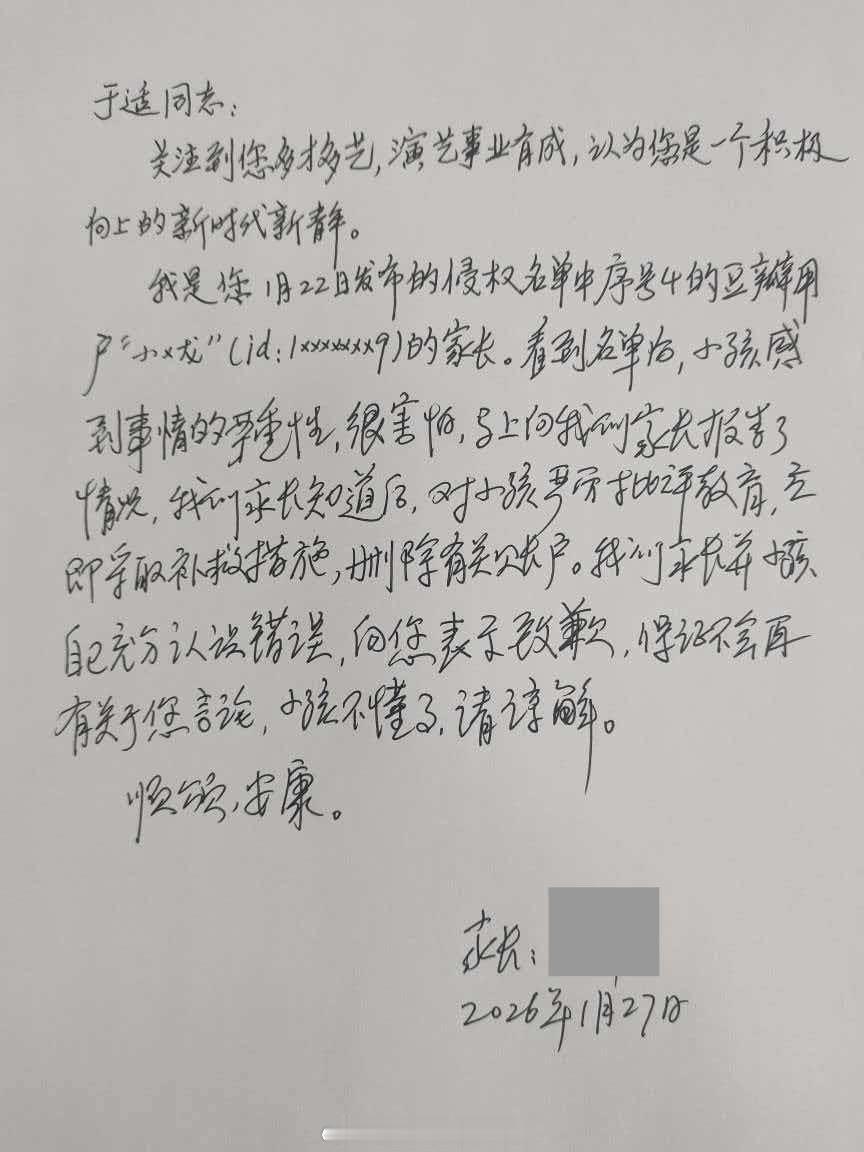 于适同志：
关注到您多才多艺，演艺事业有成，认为您是一个积极
向上的新时代新青年。
我是您1月22日发布的侵权名单中序号4的豆瓣用
户“小x龙”(id:1xxxxxxx9)的家长。看到名单后，小孩感
到事情的严重性，很害怕，马上向我们家长报告了
情况，我们家长知道后，对小孩严厉批评教育，立
即采取补救措施，删除有关账户。我们家长并小孩
自己充分认识错误，向您表示致歉，保证不会再
有关于您言论，小孩不懂事，请谅解。
顺颂，安康。
家长：
2026年1月27日